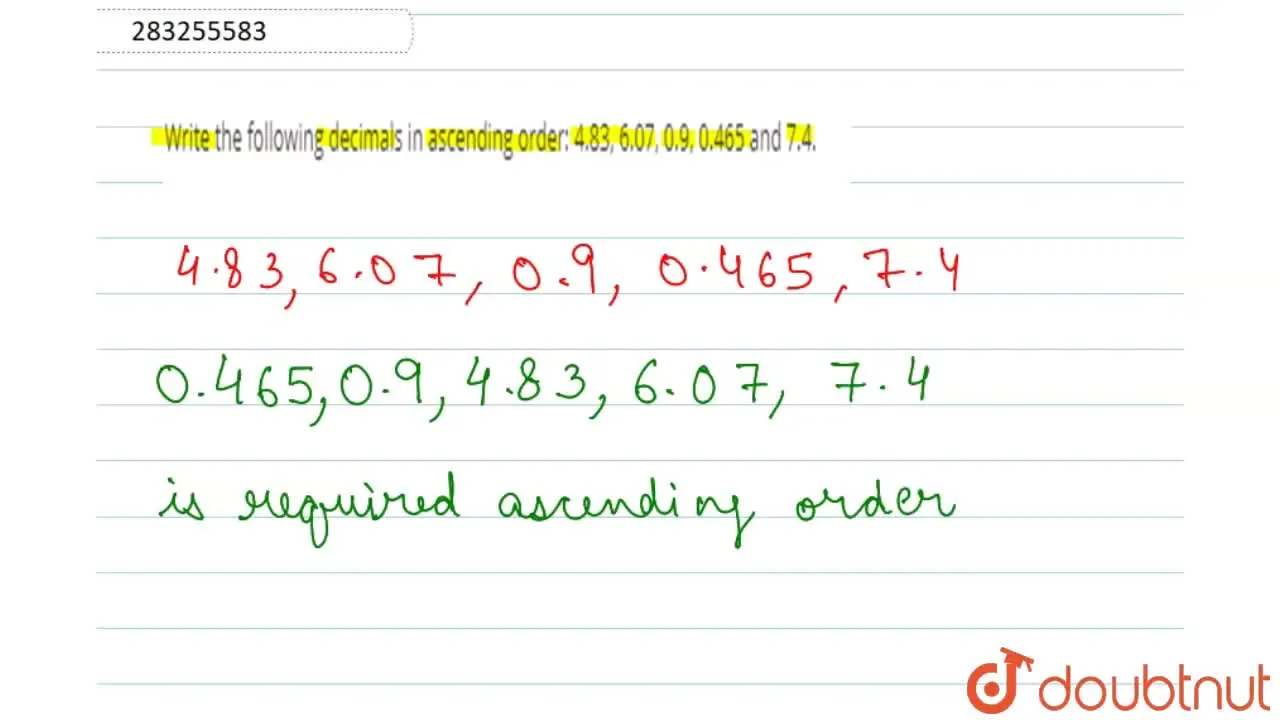 283255583
Write the following decimals in ascending order: 4.83, 6.07, 0.9, 0.465 and 7.4.
4.83, 6.07, 0.9, 0.465, 7.4
0.465, 0.9, 4.83, 6.07, 7.4
is required ascending order
doubtnut